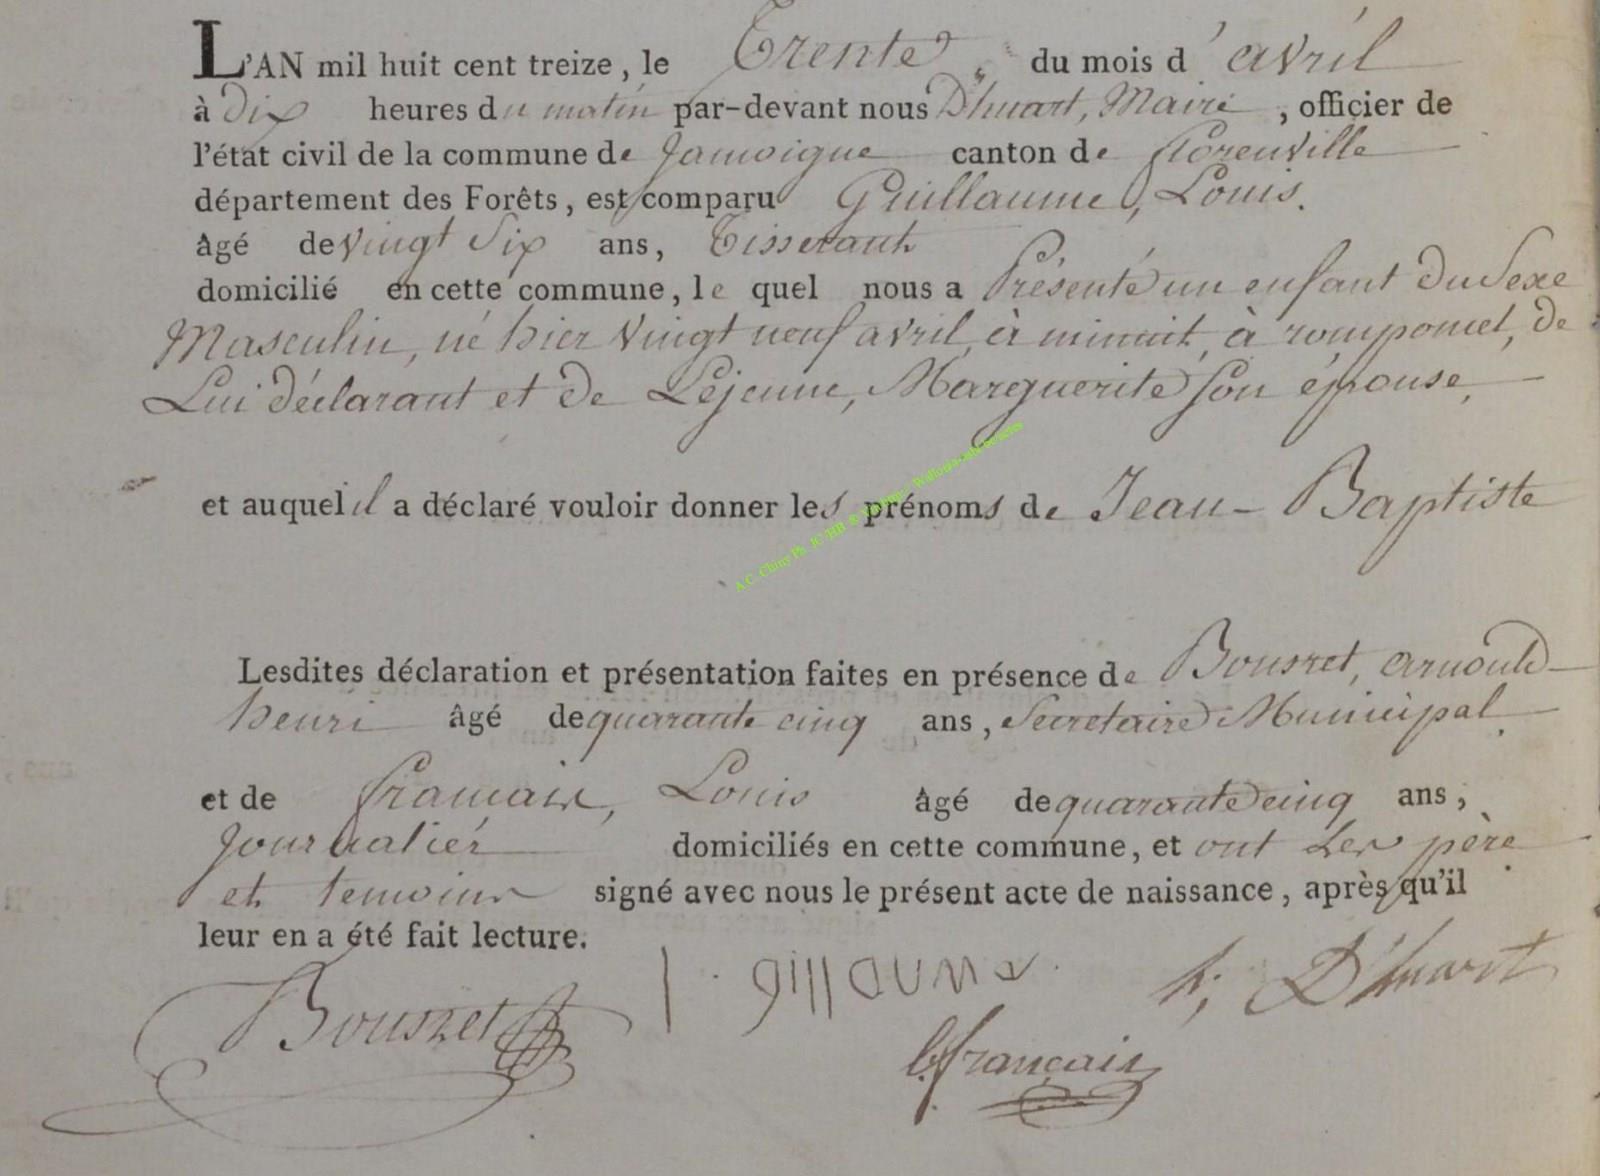 L'AN mil huit cent treize, le Trente du mois d'avril
à dix heures du matin par-devant nous D'huart, Maire, officier de
l'état civil de la commune de Jamoigne canton de florenville
département des Forêts, est comparu Guillaume, Louis.
âgé de vingt Six ans, Tisserant
domicilié en cette commune, le quel nous a Présenté un enfant du Sexe
Masculin, né hier vingt neuf avril, à minuit, à romponcel, de
Lui déclarant et de Lejeune, Marguerite son épouse,
et auquel il a déclaré vouloir donner les prénoms de Jean-Baptiste
A.C. Chiny Ph. JC HB
Lesdites déclaration et présentation faites en présence de Bousret, arnould
henri âgé de quarante cinq ans, Secretaire Municipal.
et de français, Louis âgé de quarante cinq ans,
Journalier domiciliés en cette commune, et ont les père
et temoins signé avec nous le présent acte de naissance, après qu'il
leur en a été fait lecture.
Bousret l. gillaume. h; D'huart
l. français